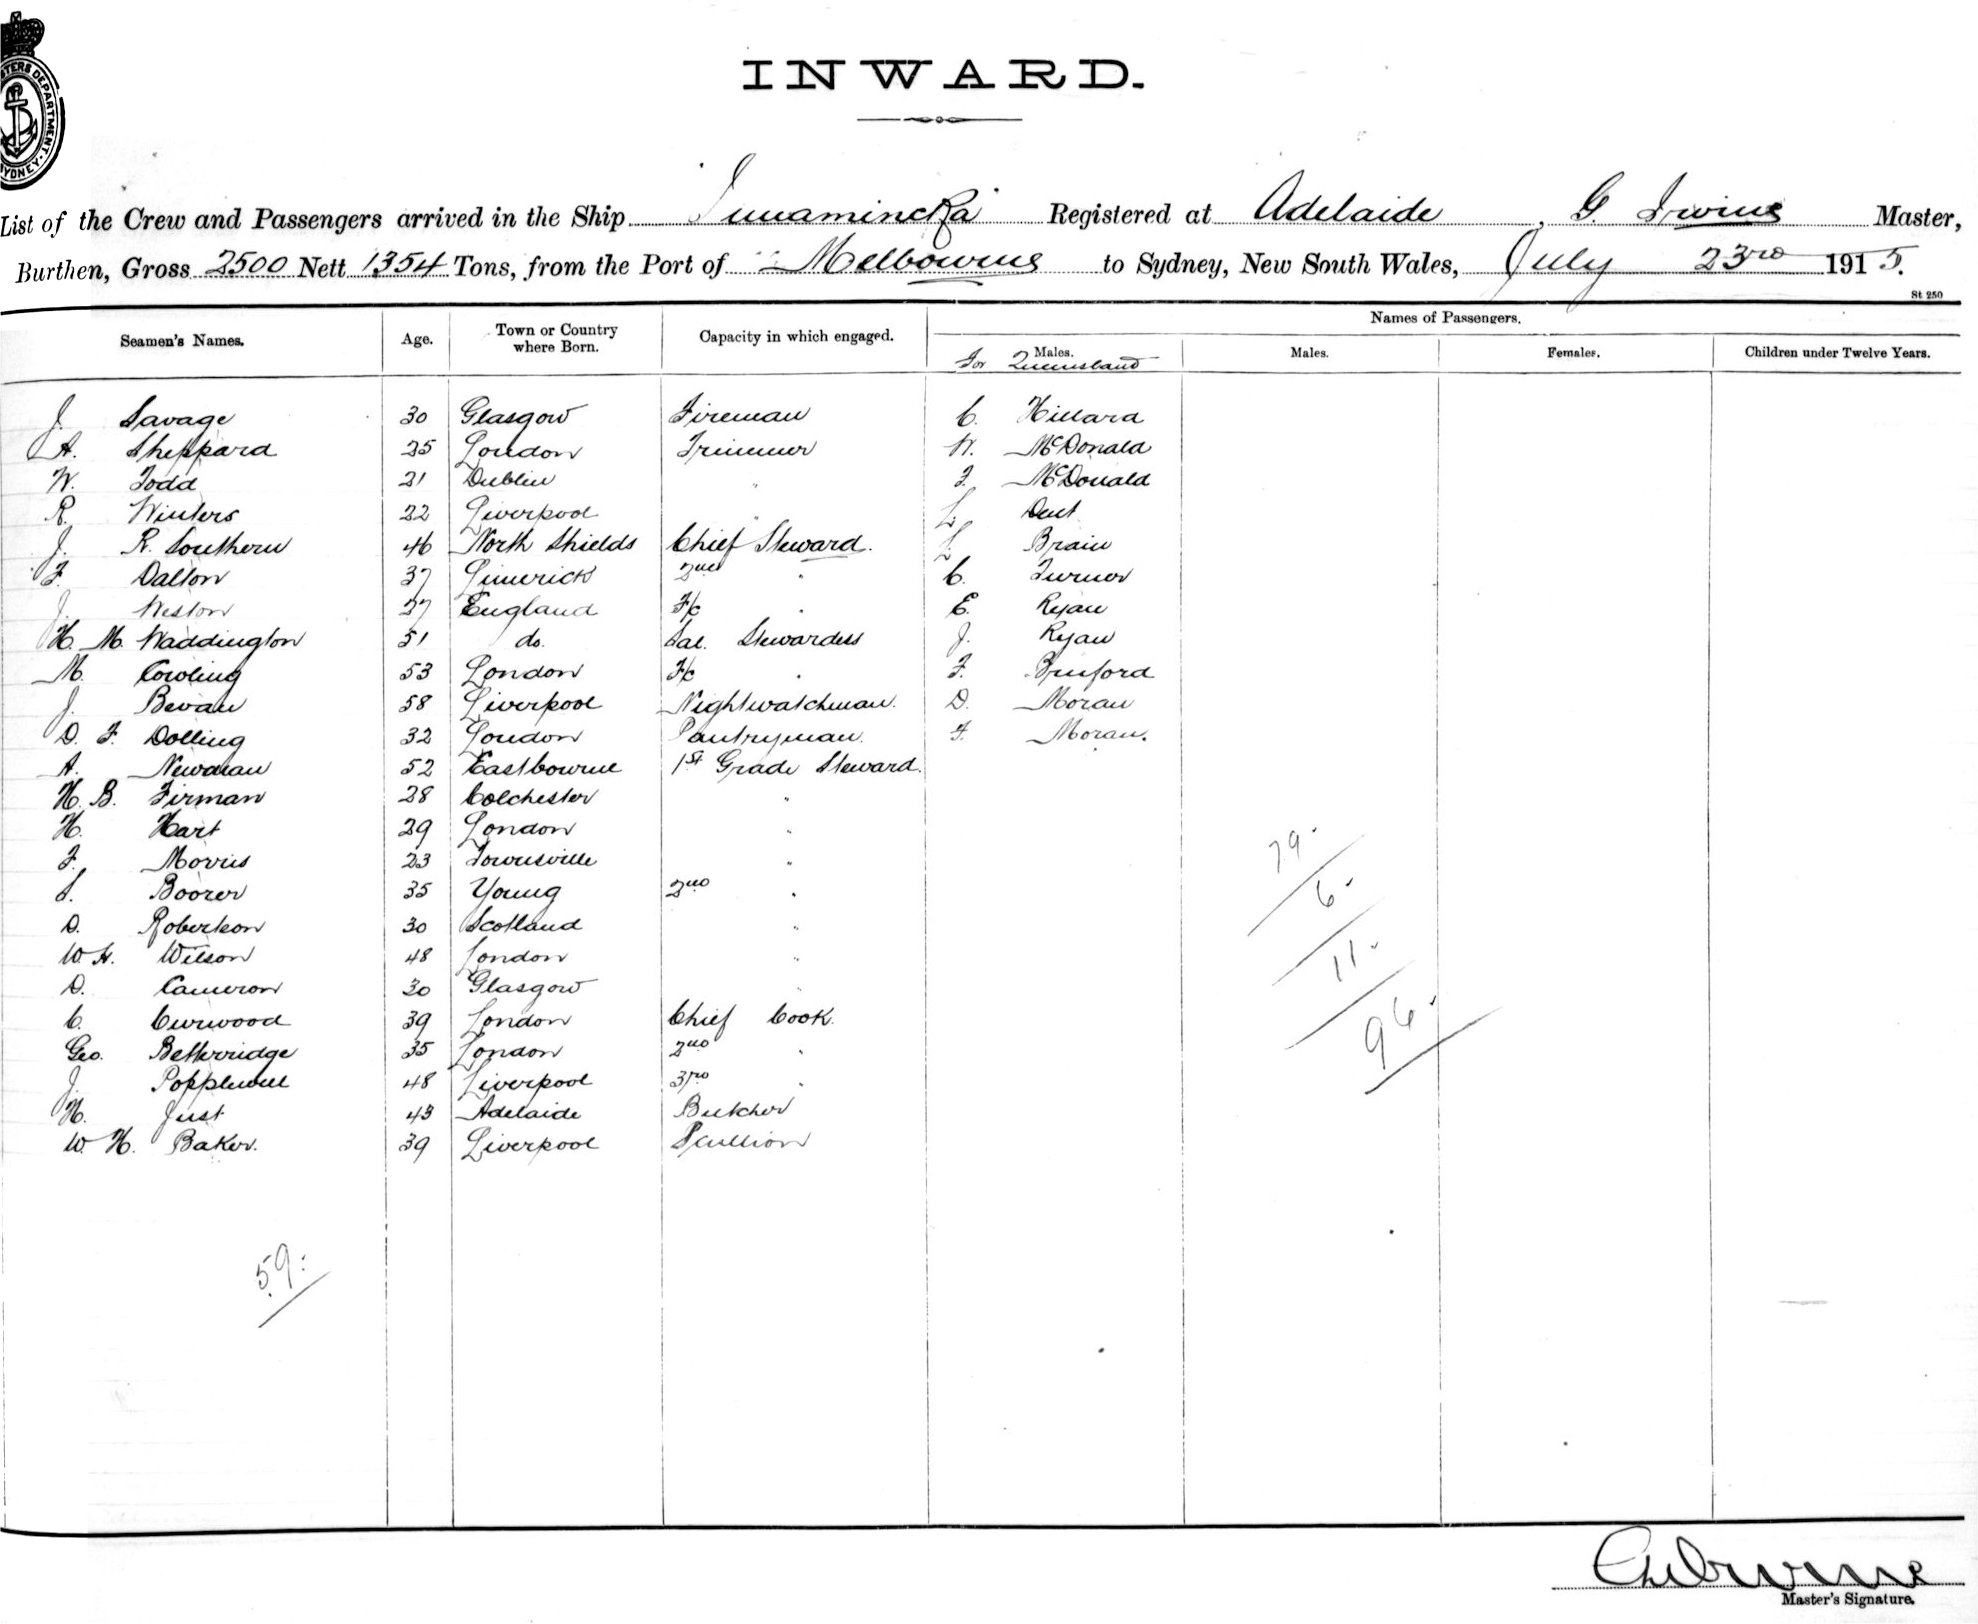 INWARD.
List of the Crew and Passengers arrived in the Ship Innamincka Registered at Adelaide, G. Irvine Master,
Burthen, Gross 2500 Nett 1354 Tons, from the Port of Melbourne to Sydney, New South Wales, July 23rd 1915.
St 250
Seamen's Names. Age. Town or Country where Born. Capacity in which engaged. Names of Passengers.
Males. Males. Females. Children under Twelve Years.
For Queensland
J. Savage 30 Glasgow Fireman C. Hillard
A. Sheppard 25 London Trimmer W. McDonald
W. Todd 21 Dublin " F. McDonald
R. Winters 22 Liverpool " L. Dent
J. R. Southern 46 North Shields Chief Steward. L. Brain
F. Dalton 37 Limerick 2nd " C. Turner
J. Weston 27 England F/c " E. Ryan
H. M. Waddington 51 do. Sal. Stewardess J. Ryan
M. Cowling 53 London F/c " F. Binford
J. Bevan 58 Liverpool Nightwatchman. D. Moran
D. F. Dolling 32 London Pantryman. F. Moran.
A. Newman 52 Eastbourne 1st Grade Steward.
H. B. Firman 28 Colchester "
H. Hart 29 London "
F. Morris 23 Townsville "
S. Boorer 35 Young 2nd "
D. Robertson 30 Scotland "
W. H. Wilson 48 London "
D. Cameron 30 Glasgow "
C. Curwood 39 London Chief Cook.
Geo. Betteridge 35 London 2nd "
J. Popplewell 48 Liverpool 3rd "
H. Just 43 Adelaide Butcher
W. H. Baker. 39 Liverpool Scullion
79.
6.
11.
96.
59.
Master's Signature.